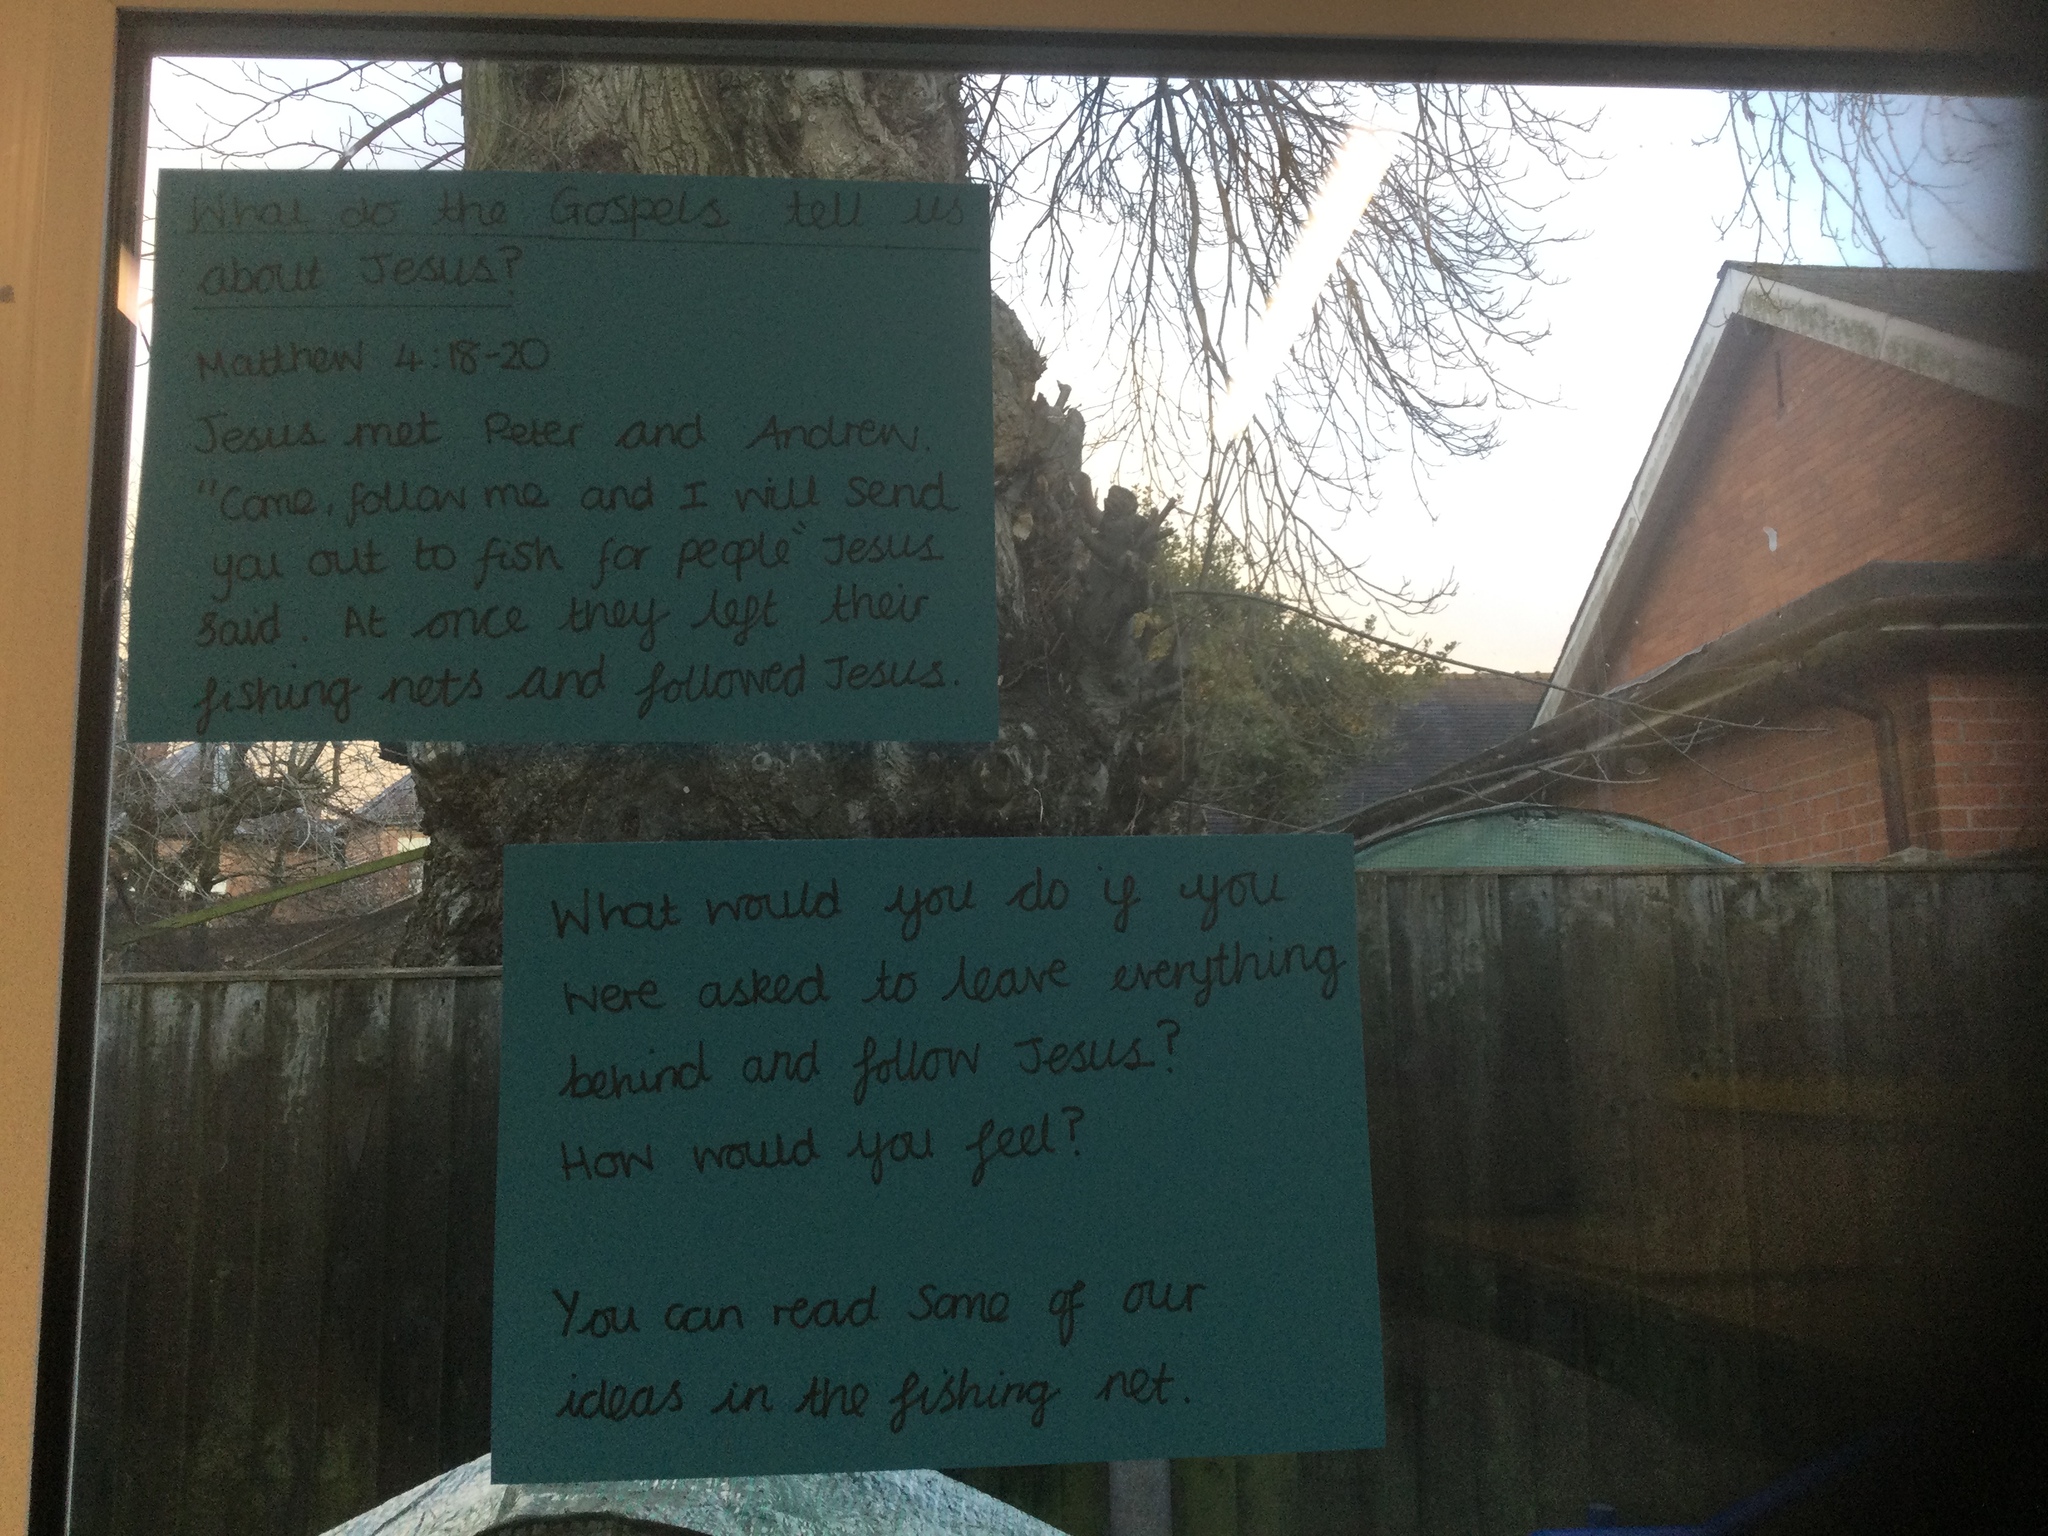 What do the Gospels tell us
about Jesus?
Matthew 4:18-20
Jesus met Peter and Andrew.
"Come, follow me and I will send
you out to fish for people" Jesus
said. At once they left their
fishing nets and followed Jesus.
What would you do if you
were asked to leave everything
behind and follow Jesus?
How would you feel?
You can read some of our
ideas in the fishing net.